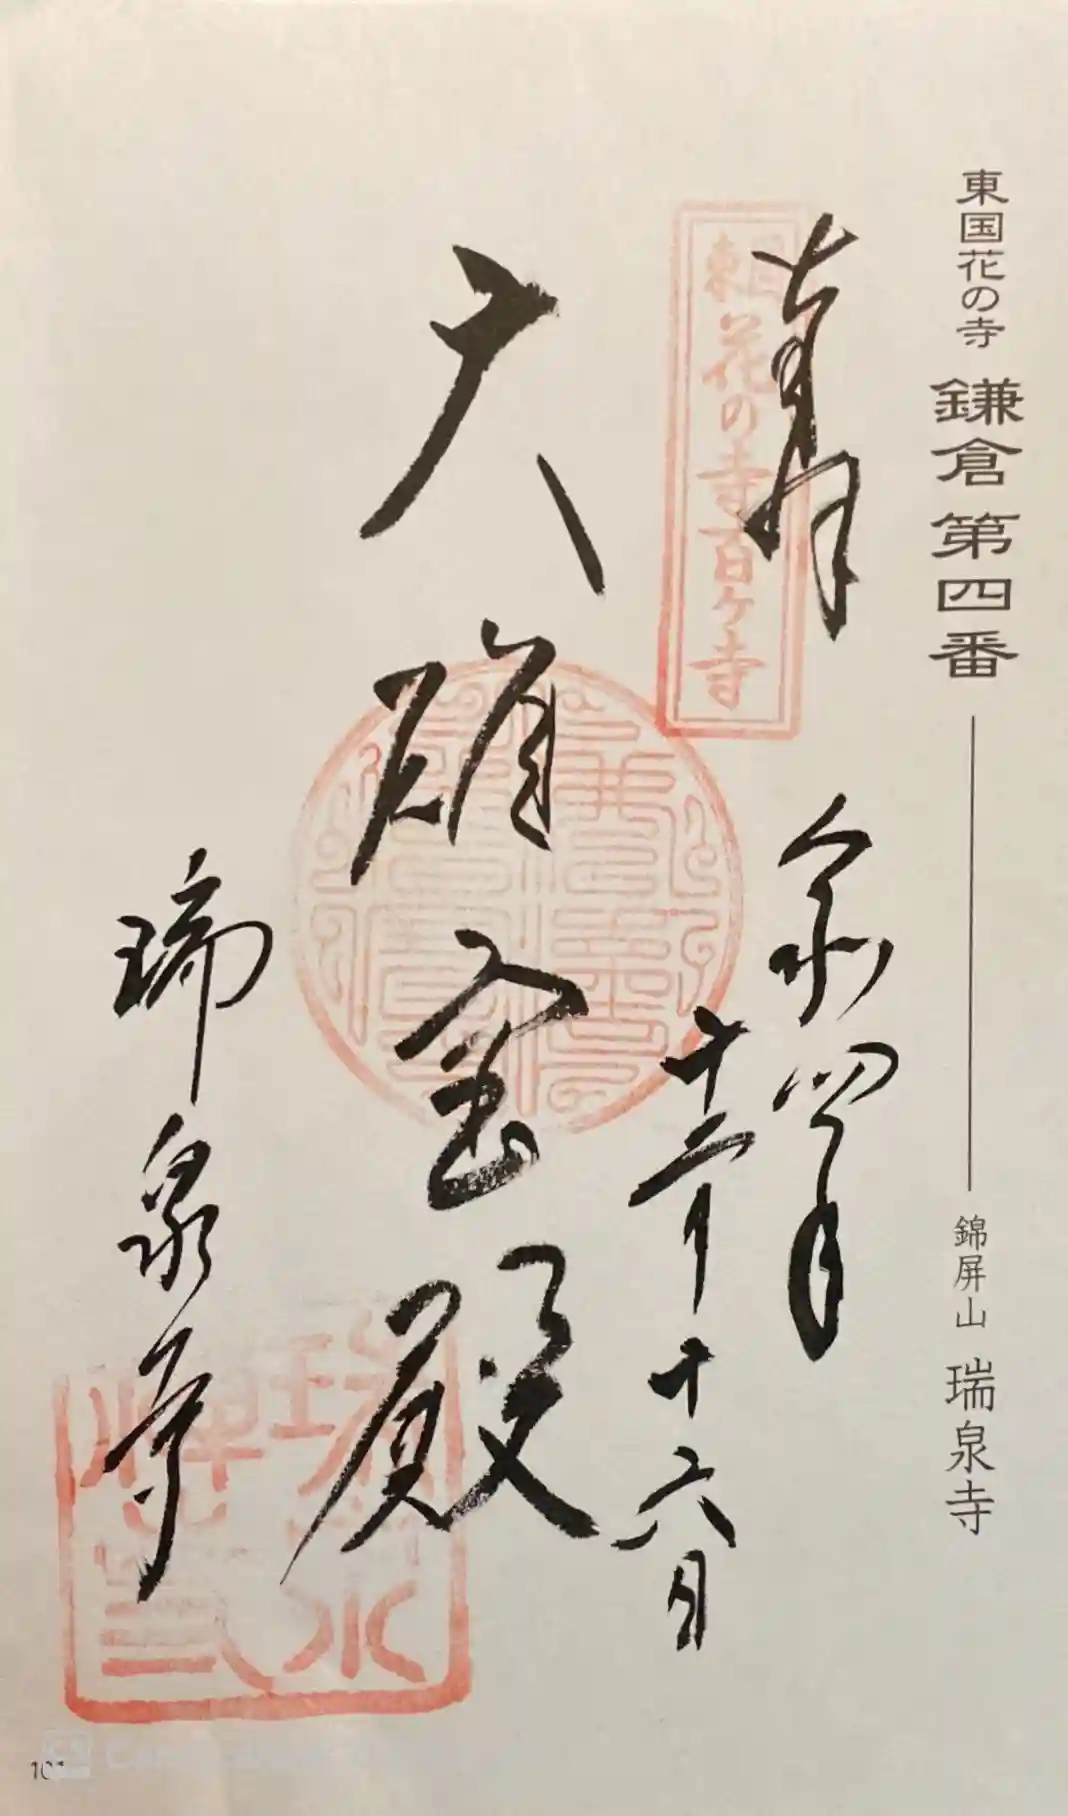 東国花の寺 鎌倉第四番 錦屏山 瑞泉寺
奉拝 令和四年
十二月十六日
大雄宝殿
瑞泉寺
東国
花の寺百ヶ寺